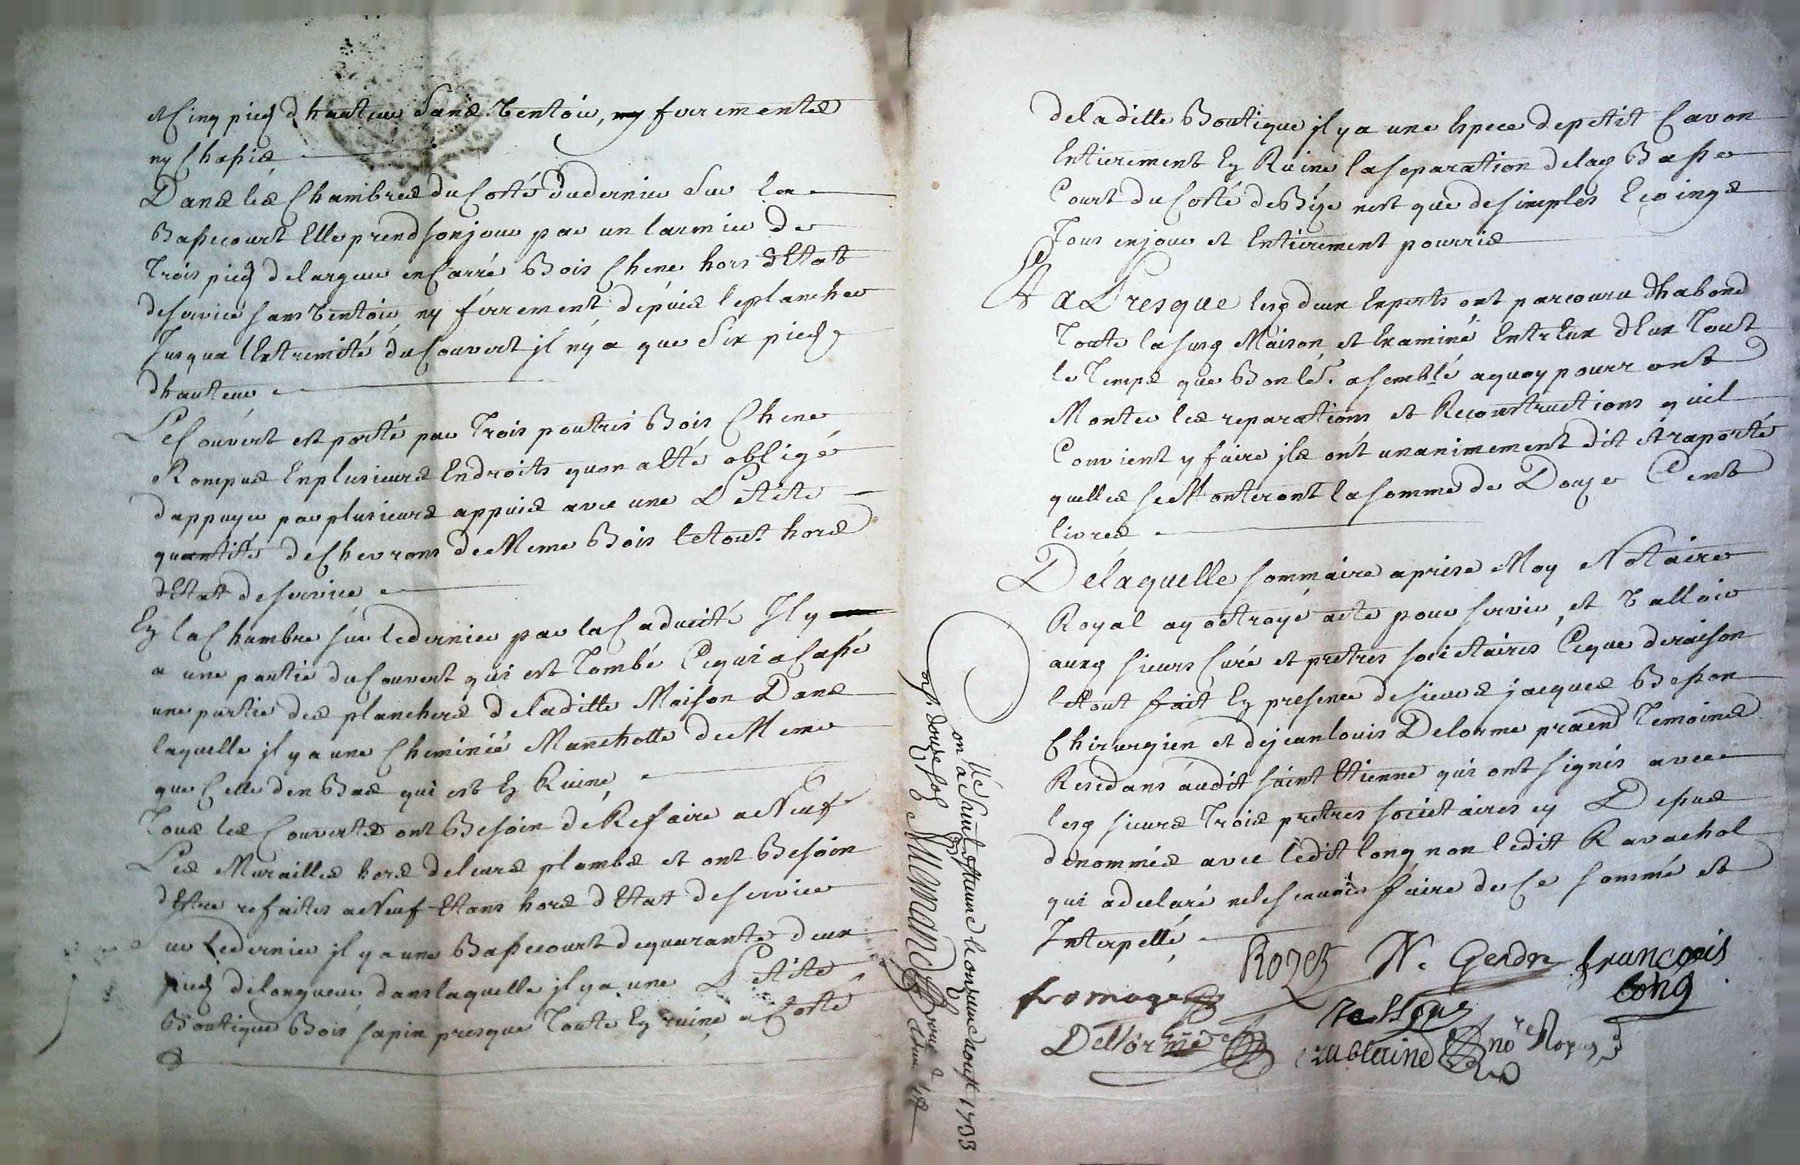 et Cinq pied d hauteur Sans Ventoir, ny ferrementes
ny Chapie
Dans les Chambres du Coté dudernier Sur la
Bassecourt Elle prend sonjour par un larmier de
Trois pied delargeur en Carré Bois Chene hors dEtat
deservice sans Ventoir ny ferrement depuis leplancher
Jusqua lExtremité duCouvert jl nÿ a que Six pieds
dhauteur
Le Couvert est porté par Trois poutres Bois Chene
Rompues Enplusieurs Endroits quon a Eté obligé
dappuyer parplusieurs appuis avec une Petite
quantité deChevrons deMeme Bois letout hors
dEtat deservice
En la Chambre sur ledernier par la Caducité Jl y
a une partie duCouvert qui est Tombé Cequi a Cassé
une partie des planchers deladitte Maison Dans
laquelle jl ya une Cheminée Manchotte deMeme
que Celle den Bas qui est En Ruine
Tous les Couverts ont Besoin deRefaire aNeuf
Les Murailles hors deleurs plombs et ont Besoin
dEstre refaites aNeuf Etans hors dEtat deservice
Sur Ledernier jl ya une Bassecourt dequarante deux
pied delongueur danslaquelle jl ya une Petite
Boutique Bois sapin presque Toute En ruine a Coté
deladitte Boutique jl y a une Espece depetit Cavon
Entierement En Ruine laseparation delad Basse
Court du Coté deBize nest que desimples
Tous enjour et Entierement pourris
aPresque lesd deux Experts ont parcouru dhabond
Toute lasusd Maison et Examiné Entr Eux dEux Tout
le Temps que Bonleur a semblé aquoy pourront
Monter les reparations et Reconstructions quil
Convient y faire jls ont unanimement dit et raporté
quelles se Monteront lasomme de Douze Cent
livres
Delaquelle sommaire aprise Moy Notaire
Royal ay octroyé acte pour servir et Valloir
auxd sieurs Curé et pretres societaires Ceque deraison
letout fait En presence desieurs jacques Besson
Chirurgien et dejeanlouis Delorme praend Temoins
Residans audit saint Etienne qui ont signés avec
lesd sieurs Trois pretres societaires cy Dessus
denommés avec ledit long non ledit Ravachol
qui a declaré nelescavoir faire de Ce sommé et
Interpellé
Rozet N. Gerdn francois
long
fromage
Besson
Dellorme
no.re Royal
à Saint Etienne le onzieme aoust 1733